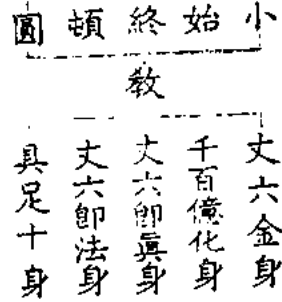 小始終頓圓
教
丈六金身
千百億化身
丈六卽眞身
丈六卽法身
具足十身